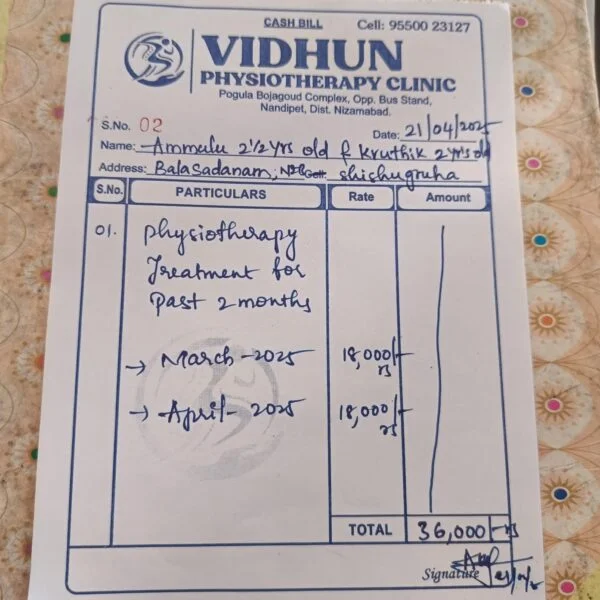 CASH BILL
Cell: 95500 23127
VIDHUN
PHYSIOTHERAPY CLINIC
Pogula Bojagoud Complex, Opp. Bus Stand,
Nandipet, Dist. Nizamabad.
S.No. 02
Date: 21/04/2025
Name: Ammulu 2 1/2 yrs old & Kruthik 2 yrs old
Address: Balasadanam, Cell: shishugruha
S.No. PARTICULARS Rate Amount
01. Physiotherapy
Treatment for
Past 2 months
→ March - 2025 18,000/- rs
→ April - 2025 18,000/- rs
TOTAL 36,000/- rs
Signature